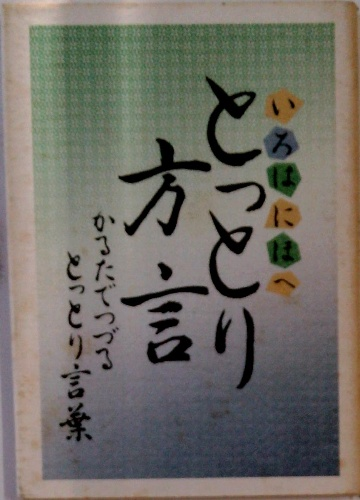 いろはにほへ
とっとり
方言
かるたでつづる
とっとり言葉